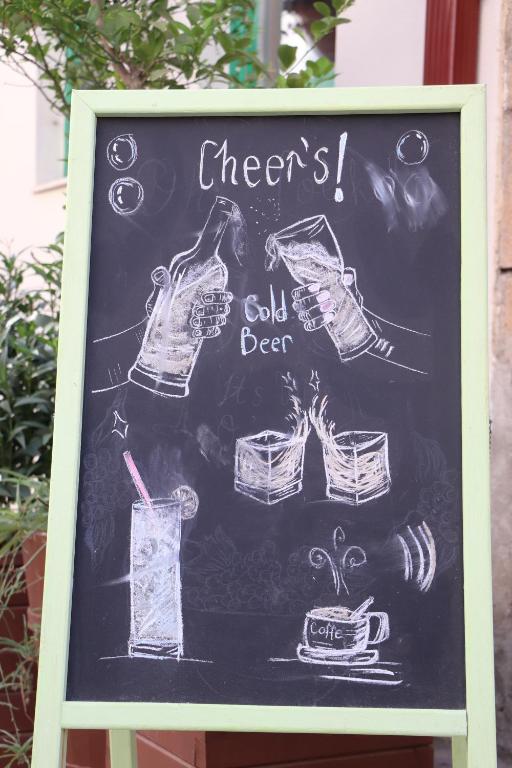 Cheer's!
Cold
Beer
It's
Coffe